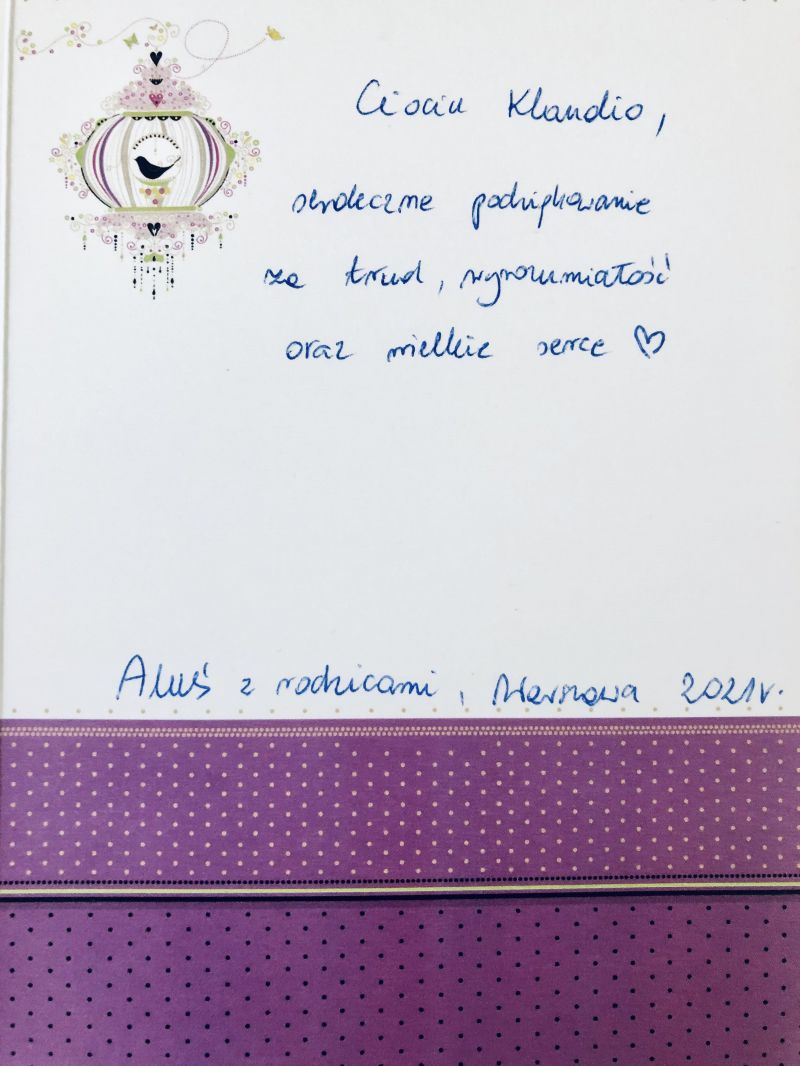 Ciociu Klaudio,
serdeczne podziękowanie
za trud, wyrozumiałość
oraz wielkie serce ♡
Aluś z rodzicami, Warszawa 2021r.